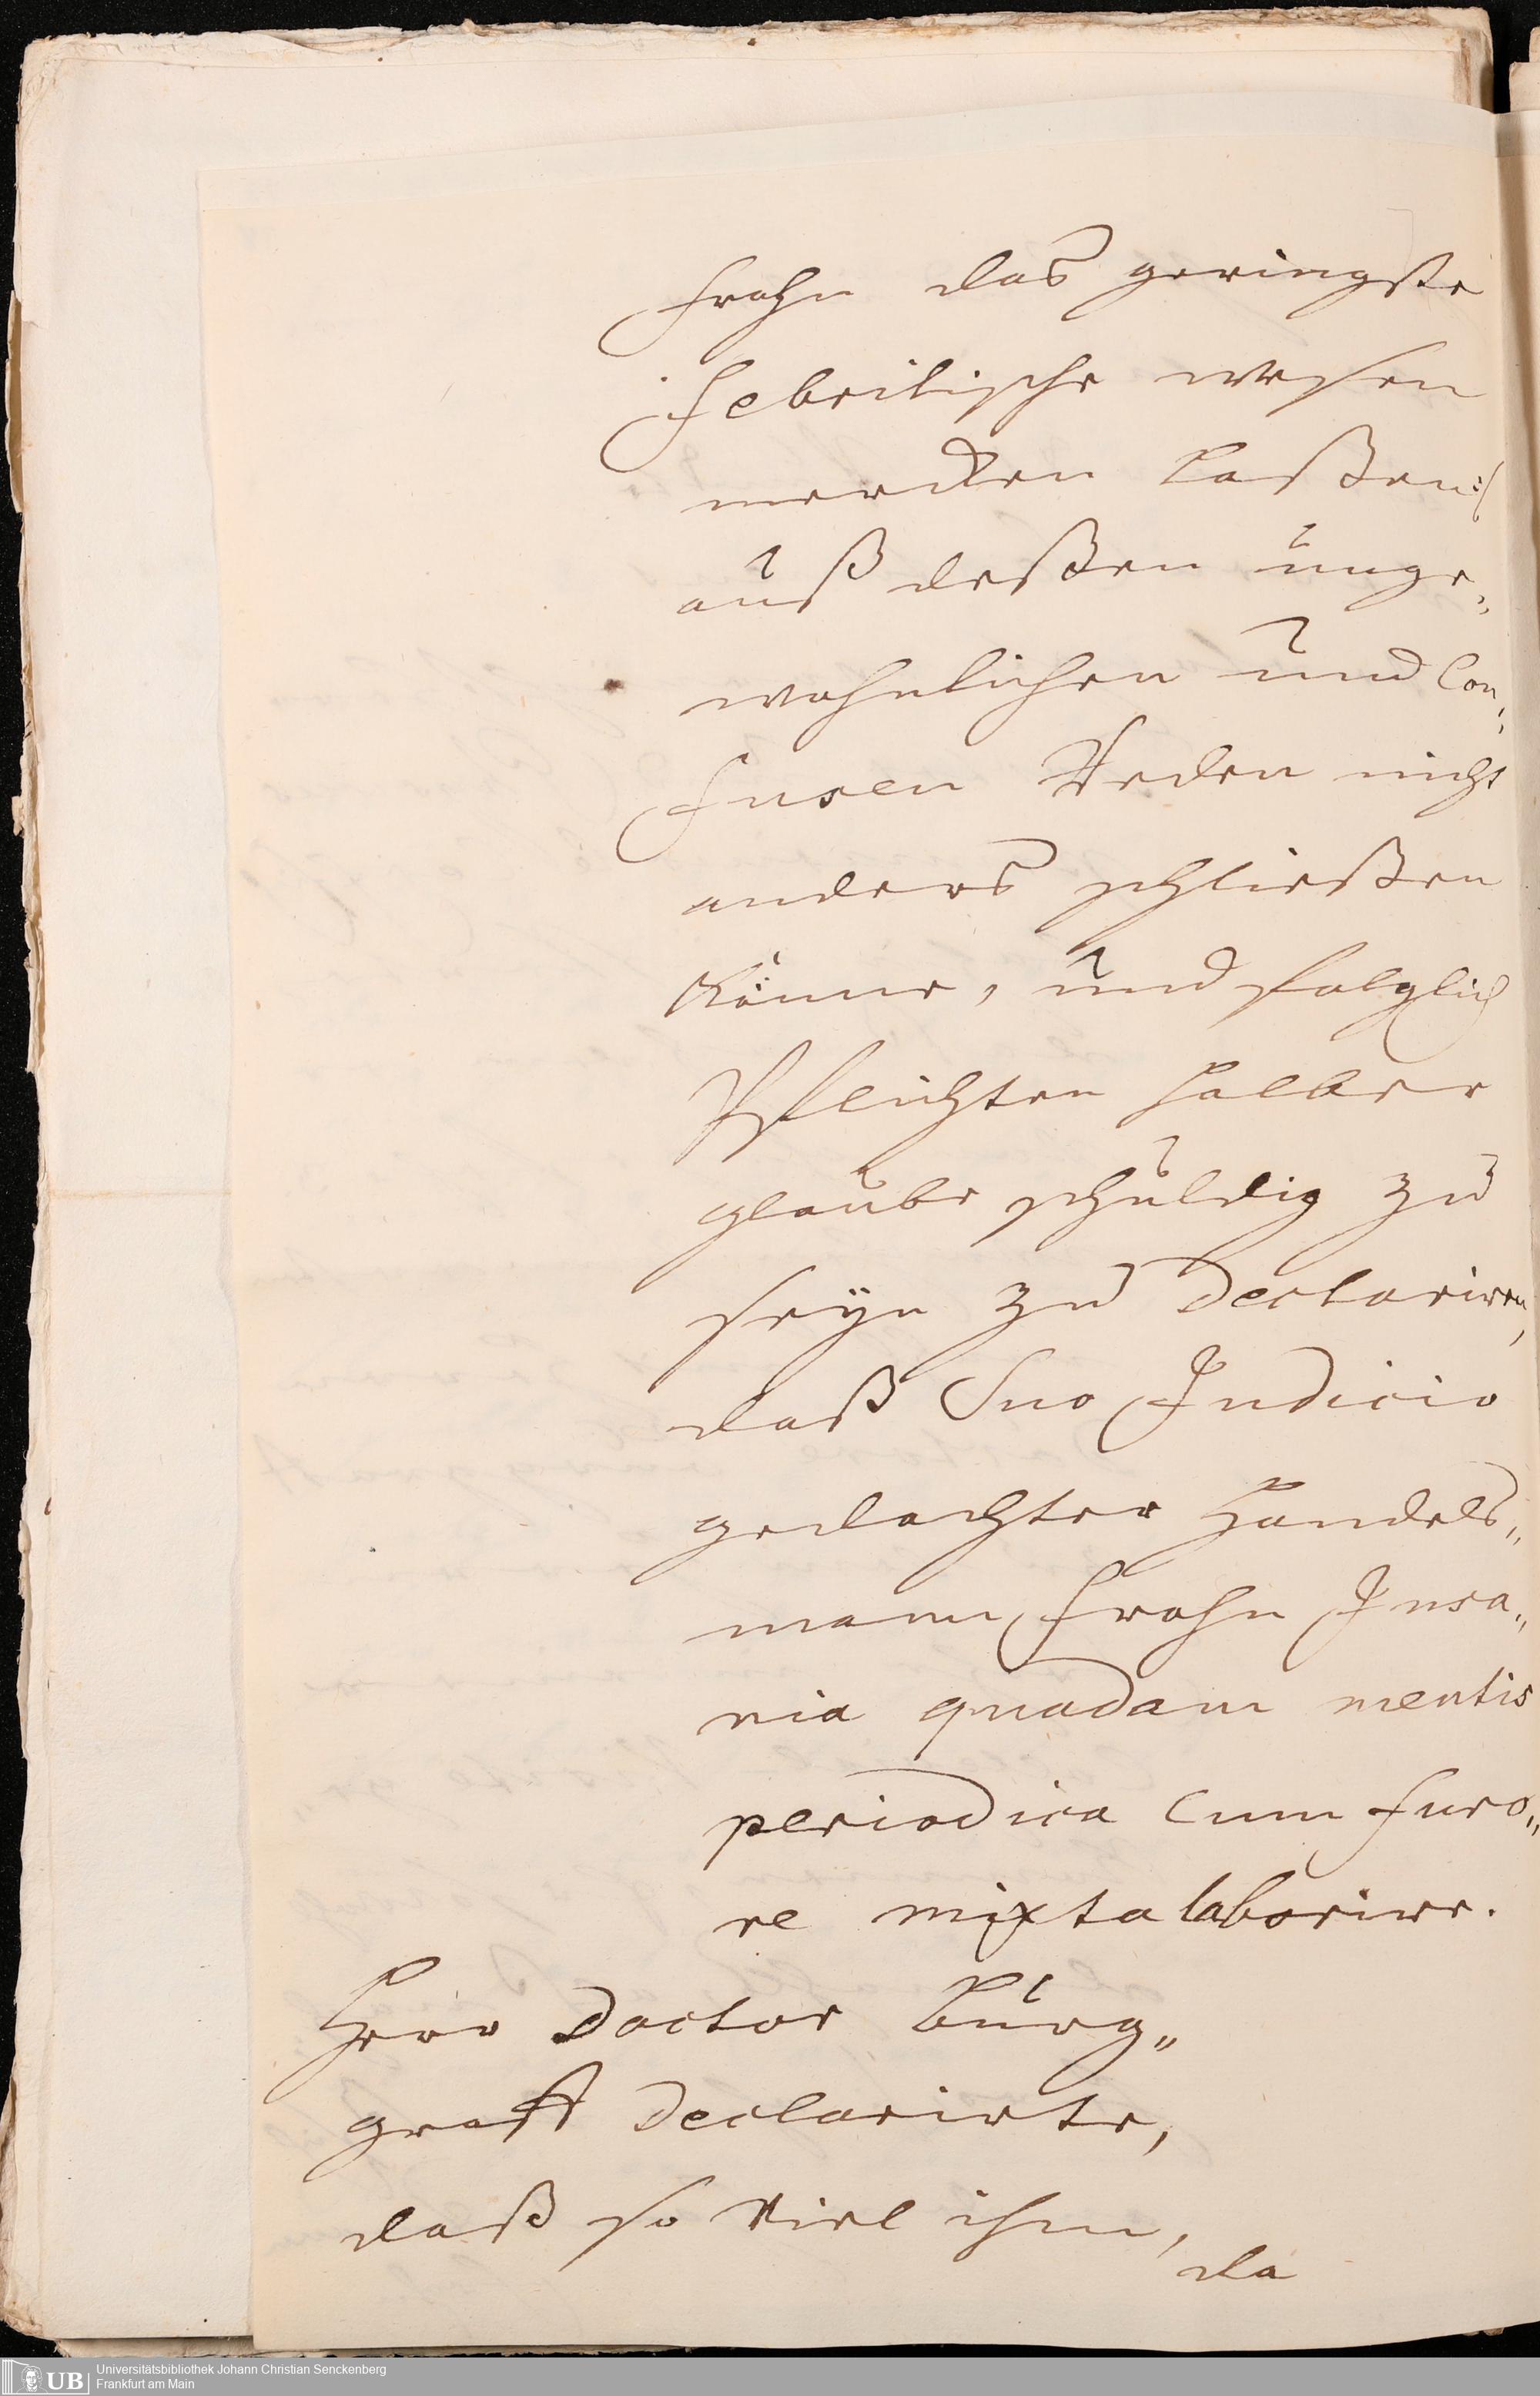 Frohn das geringste
febrilische wesen
mercken laßen:/
auß deßen unge„
wohnlichen und Con„
fusen Reden nicht
anders schließen
könne, und folglich
Pflichten halber
glaube schuldig zu
seÿn zu Declariren,
daß Suo Judicio
gedachter Handels„
mann Frohn Insa„
nia quadam mentis
periodica cum furo„
re mixta laborire.
Herr Doctor Burg„
graff Declarirte,
daß so viel ihm,
da
UB Universitätsbibliothek Johann Christian Senckenberg
Frankfurt am Main